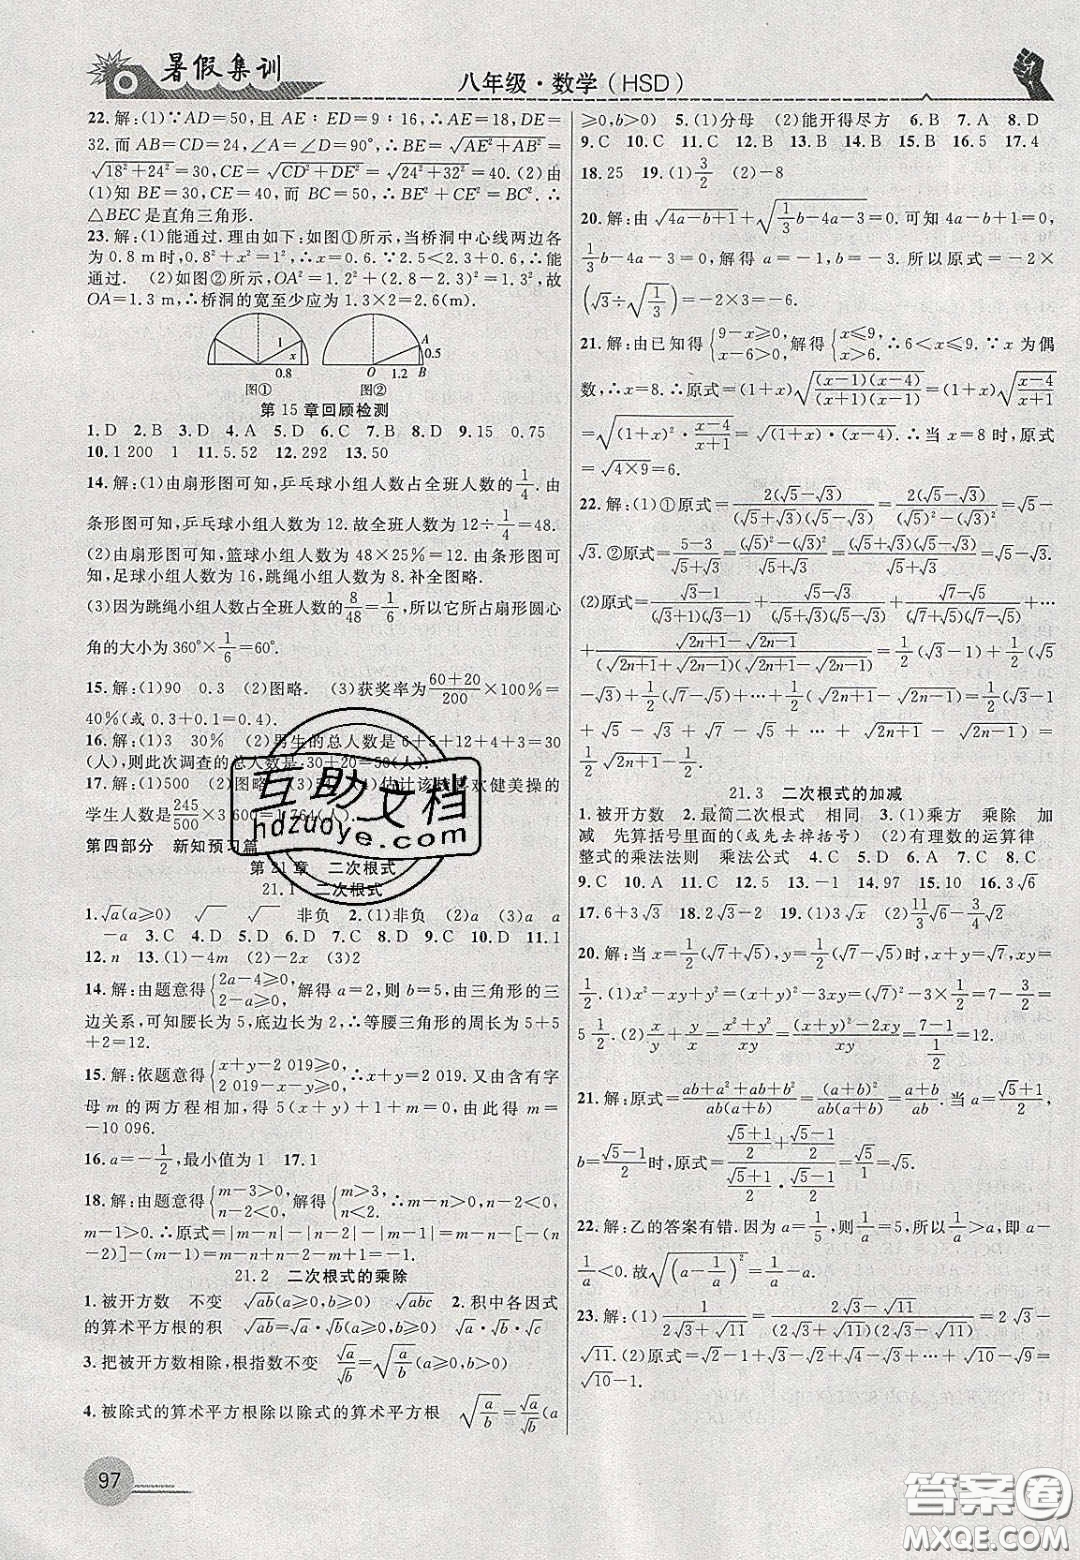 暑假集训
八年级·数学(HSD)
22.解:(1)∵AD=50,且 AE∶ED=9∶16,∴AE=18,DE=
32.而AB=CD=24,∠A=∠D=90°,∴BE=√(AE²+AB²)=
√(18²+24²)=30,CE=√(CD²+DE²)=√(24²+32²)=40.(2)由
(1)知 BE=30,CE=40,而 BC=50,∴BE²+CE²=BC².∴
△BEC是直角三角形.
23.解:(1)能通过.理由如下:如图①所示,当桥洞中心线两边各
为0.8 m时,x²+0.8²=1²,∴x=0.6.∵2.5<2.3+0.6,∴能
通过. (2)如图②所示,OA²=1.2²+(2.8-2.3)²=1.3²,故
OA=1.3 m,∴桥洞的宽至少应为1.3×2=2.6(m).
1 x 0.8
A 0.5 O 1.2 B
图① 图②
第15章回顾检测
1.D 2.B 3.D 4.A 5.D 6.C 7.B 8.D 9.15 0.75
10.1 200 1 11.5.52 12.292 13.50
14.解:(1)由扇形图可知,乒乓球小组人数占全班人数的1/4.由
条形图可知,乒乓球小组人数为12.故全班人数为12÷1/4=48.
(2)由扇形图可知,篮球小组人数为48×25%=12.由条形图可
知,足球小组人数为16,跳绳小组人数为8.补全图略.
(3)因为跳绳小组人数占全班人数的8/48=1/6,所以它所占扇形圆心
角的大小为360°×1/6=60°.
15.解:(1)90 0.3 (2)图略. (3)获奖率为(60+20)/200×100%=
40%(或0.3+0.1=0.4).
16.解:(1)3 30% (2)男生的总人数是6+5+12+4+3=30
(人),则此次调查的总人数是30+20=50(人).
17.解:(1)500 (2)图略 (3)54° (4)估计该校喜欢健美操的
学生人数是245/500×3 600=1 764(人).
第四部分 新知预习篇
第21章 二次根式
21.1 二次根式
1.√a(a≥0) √ √ 非负 2.(1)非负 (2)a (3)a a
-a 3.C 4.D 5.D 6.C 7.B 8.D 9.C 10.D 11.1
12.n 13.(1)-4m (2)-2x (3)2
14.解:由题意得{2a-4≥0, 2-a≥0, 解得a=2,则b=5,由三角形的三
边关系,可知腰长为5,底边长为2,∴等腰三角形的周长为5+5
+2=12.
15.解:依题意得{x+y-2 019≥0, 2 019-x-y≥0, ∴x+y=2 019.又由含有字
母m的两方程相加,得5(x+y)+1+m=0,解得m=
-10 096.
16.a=-1/2,最小值为1 17.1
18.解:由题意得{m-3>0, n-2<0, 解得{m>3, n<2, ∴m-n>0,n-2<0,
m-1>0.∴原式=|m-n|-|n-2|-|m-1|=m-n-[-(n
-2)]-(m-1)=m-n+n-2-m+1=-1.
21.2 二次根式的乘除
1.被开方数 不变 √ab(a≥0,b≥0) √abc 2.积中各因式
的算术平方根的积 √ab=√a·√b(a≥0,b≥0) √a·√b·√c
3.把被开方数相除,根指数不变 √a/√b=√(a/b)(a≥0,b>0)
4.被除式的算术平方根除以除式的算术平方根 √(a/b)=√a/√b(a
≥0,b>0) 5.(1)分母 (2)能开得尽方 6.B 7.A 8.D
9.C 10.C 11.C 12.B 13.A 14.B 15.B 16.5 17.4
18.25 19.(1)3/2 (2)-8
20.解:由√(4a-b+1)+√(1/3b-4a-3)=0.可知4a-b+1=0,
1/3b-4a-3=0,解得a=-1,b=-3.所以原式=-2×
(√3÷√(1/3))=-2×3=-6.
21.解:由已知得{9-x≥0, x-6>0, 即{x≤9, x>6, ∴6<x≤9.∵x为偶
数,∴x=8.∴原式=(1+x)√((x-1)(x-4)/(x+1)(x-1))=(1+x)√((x-4)/(x+1))
=√((1+x)²·(x-4)/(x+1))=√((1+x)·(x-4)).∴当x=8时,原式
=√(4×9)=6.
22.解:(1)①原式=2(√5-√3)/((√5+√3)(√5-√3))=2(√5-√3)/((√5)²-(√3)²)=√5-
√3.②原式=(5-3)/(√5+√3)=((√5)²-(√3)²)/(√5+√3)=((√5+√3)(√5-√3))/(√5+√3)=√5-√3.
(2)原式=(√3-1)/((√3+1)(√3-1))+(√5-√3)/((√5+√3)(√5-√3))+(√7-√5)/((√7+√5)(√7-√5))+…
+(√(2n+1)-√(2n-1))/((√(2n+1)+√(2n-1))(√(2n+1)-√(2n-1)))=1/2(√3-1)+1/2(√5
-√3)+1/2(√7-√5)+…+1/2(√(2n+1)-√(2n-1))=1/2(√3-1
+√5-√3+√7-√5+…+√(2n+1)-√(2n-1))=
1/2√(2n+1)-1/2.
21.3 二次根式的加减
1.被开方数 2.最简二次根式 相同 3.(1)乘方 乘除 加
减 先算括号里面的(或先去掉括号) (2)有理数的运算律
整式的乘法法则 乘法公式 4.C 5.D 6.A 7.C 8.C
9.C 10.A 11.C 12.5 13.-1/2 14.97 15.10 16.3√6
17.6+3√3 18.2√3-2 19.(1)3√x (2)11/3√3-3/4√2
20.解:当x=1/2(√7+√5),y=1/2(√7-√5)时,x+y=√7,xy=
1/2.(1)x²-xy+y²=(x+y)²-3xy=(√7)²-3×1/2=7-3/2=
5 1/2.(2)x/y+y/x=(x²+y²)/xy=((x+y)²-2xy)/xy=(7-1)/(1/2)=12.
21.解:原式=(ab+a²+ab+b²)/(ab(a+b))=(a+b)²/(ab(a+b))=(a+b)/ab.当a=(√5+1)/2,
b=(√5-1)/2时,原式=((√5+1)/2+(√5-1)/2)/((√5+1)/2·(√5-1)/2)=√5/1=√5.
22.解:乙的答案有错.因为a=1/5,则1/a=5,所以1/a>a,即a-
1/a<0.故√((a-1/a)²)=1/a-a.
23.解:(1)1/(2√3+√11)=(2√3-√11)/((2√3+√11)(2√3-√11))=2√3-
√11.(2)原式=√2-1+√3-√2+√4-√3+…+√10-√9=
√10-1.
互助文档
hdzuoye.com
97
答案圈
MXQE.COM